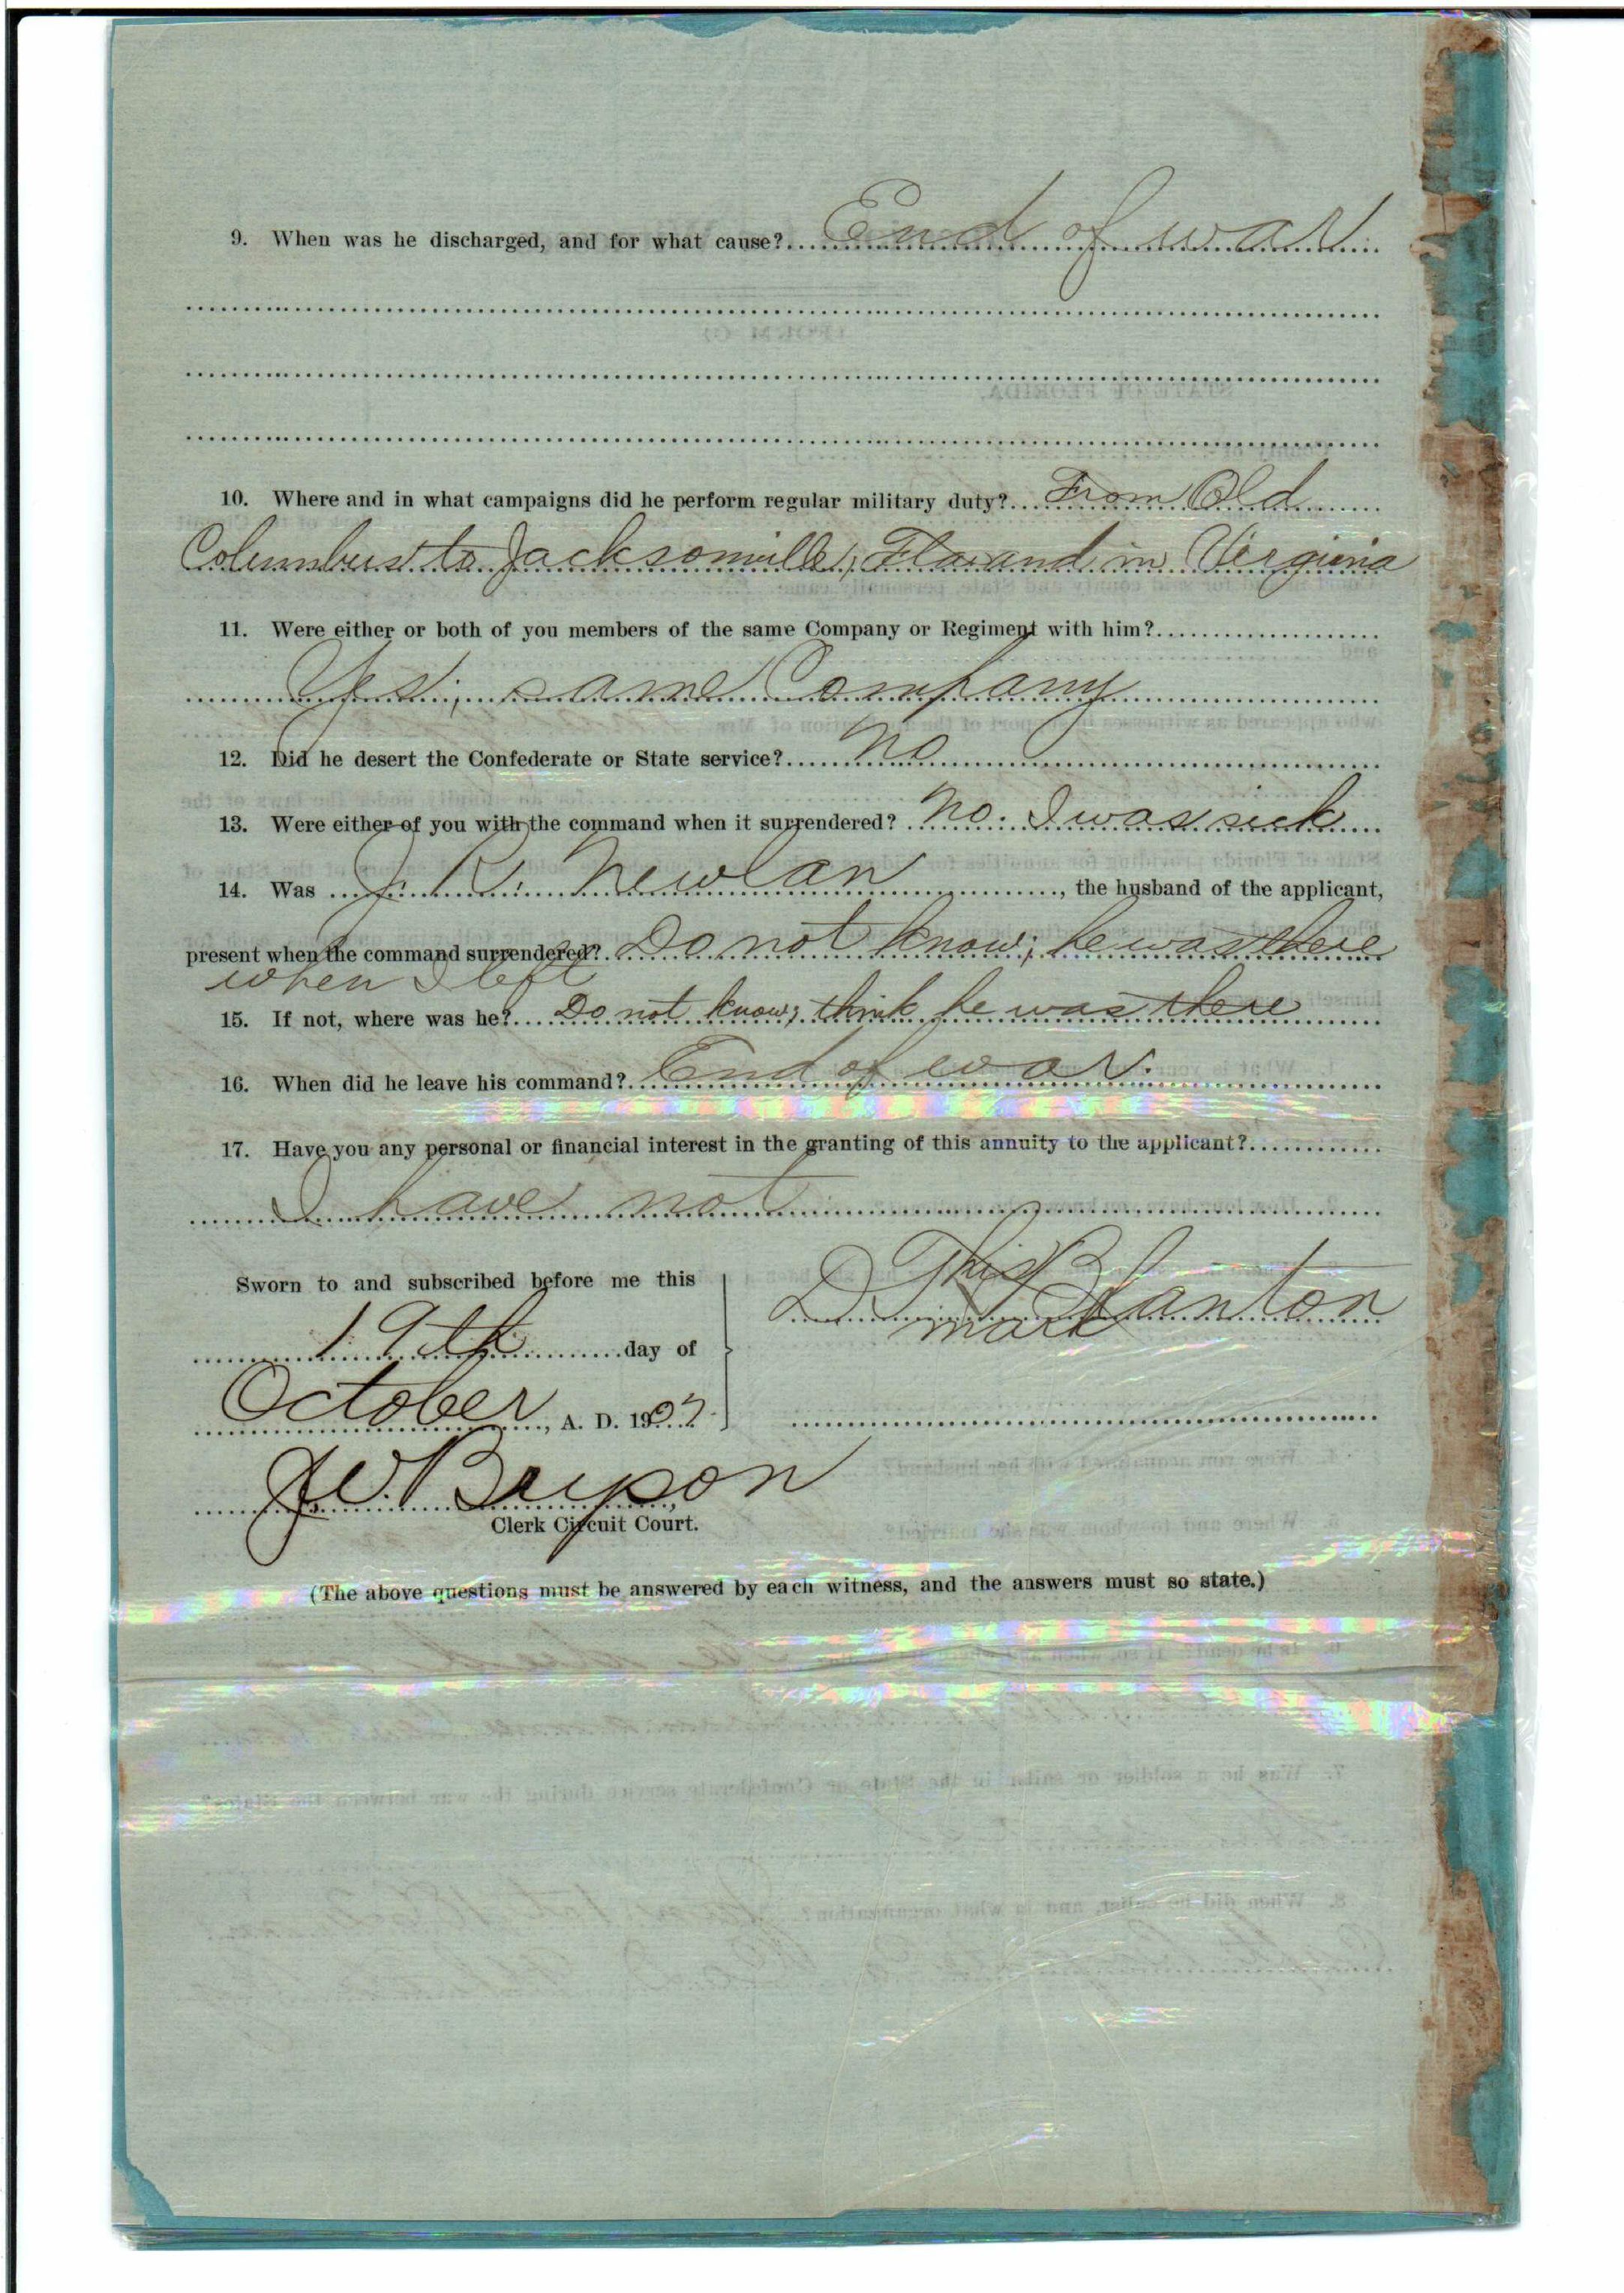 9. When was he discharged, and for what cause? End of war
10. Where and in what campaigns did he perform regular military duty? From Old
Columbus to Jacksonville, Fla. and in Virginia
11. Were either or both of you members of the same Company or Regiment with him?
Yes; same Company
12. Did he desert the Confederate or State service? No
13. Were either of you with the command when it surrendered? No. I was sick
14. Was J. R. Newlan, the husband of the applicant,
present when the command surrendered? Do not know; he was there
when I left
15. If not, where was he? Do not know; think he was there
16. When did he leave his command? End of war.
17. Have you any personal or financial interest in the granting of this annuity to the applicant?
I have not
Sworn to and subscribed before me this
19th day of
October, A. D. 1907.
J.W. Bryson
Clerk Circuit Court.
D. His X Blanton
mark
(The above questions must be answered by each witness, and the answers must so state.)